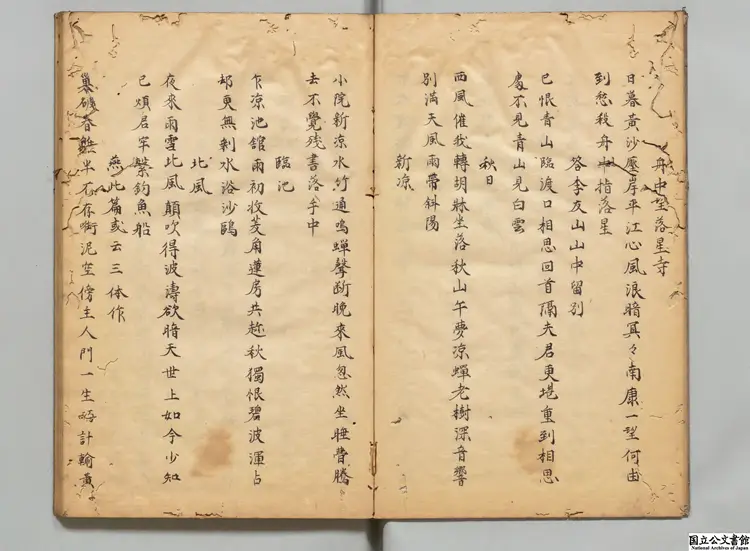 舟中望落星寺
日暮黄沙壓岸平江心風浪暗冥々南康一望何由
到愁殺舟中指落星
答李友山山中留別
已恨青山臨渡口相思回首隔夫君更堪重到相思
處不見青山見白雲
秋日
西風催我轉胡牀坐落秋山午夢凉蟬老樹深音響
別満天風雨帯斜陽
新凉
小院新凉水竹通鳴蟬聲斷晩來風忽然坐睡瞢騰
去不覺残書落手中
臨池
乍凉池舘雨初收菱角蓮房共趂秋獨恨碧波渾占
却更無剰水浴沙鷗
北風
夜來雨雪北風顛吹得波濤欲暗天世上如今少知
已煩君牢繋釣魚船
燕此篇或云三体作
巣破春殘半不存啣泥空傍主人門一生活計輸黄
国立公文書館
National Archives of Japan